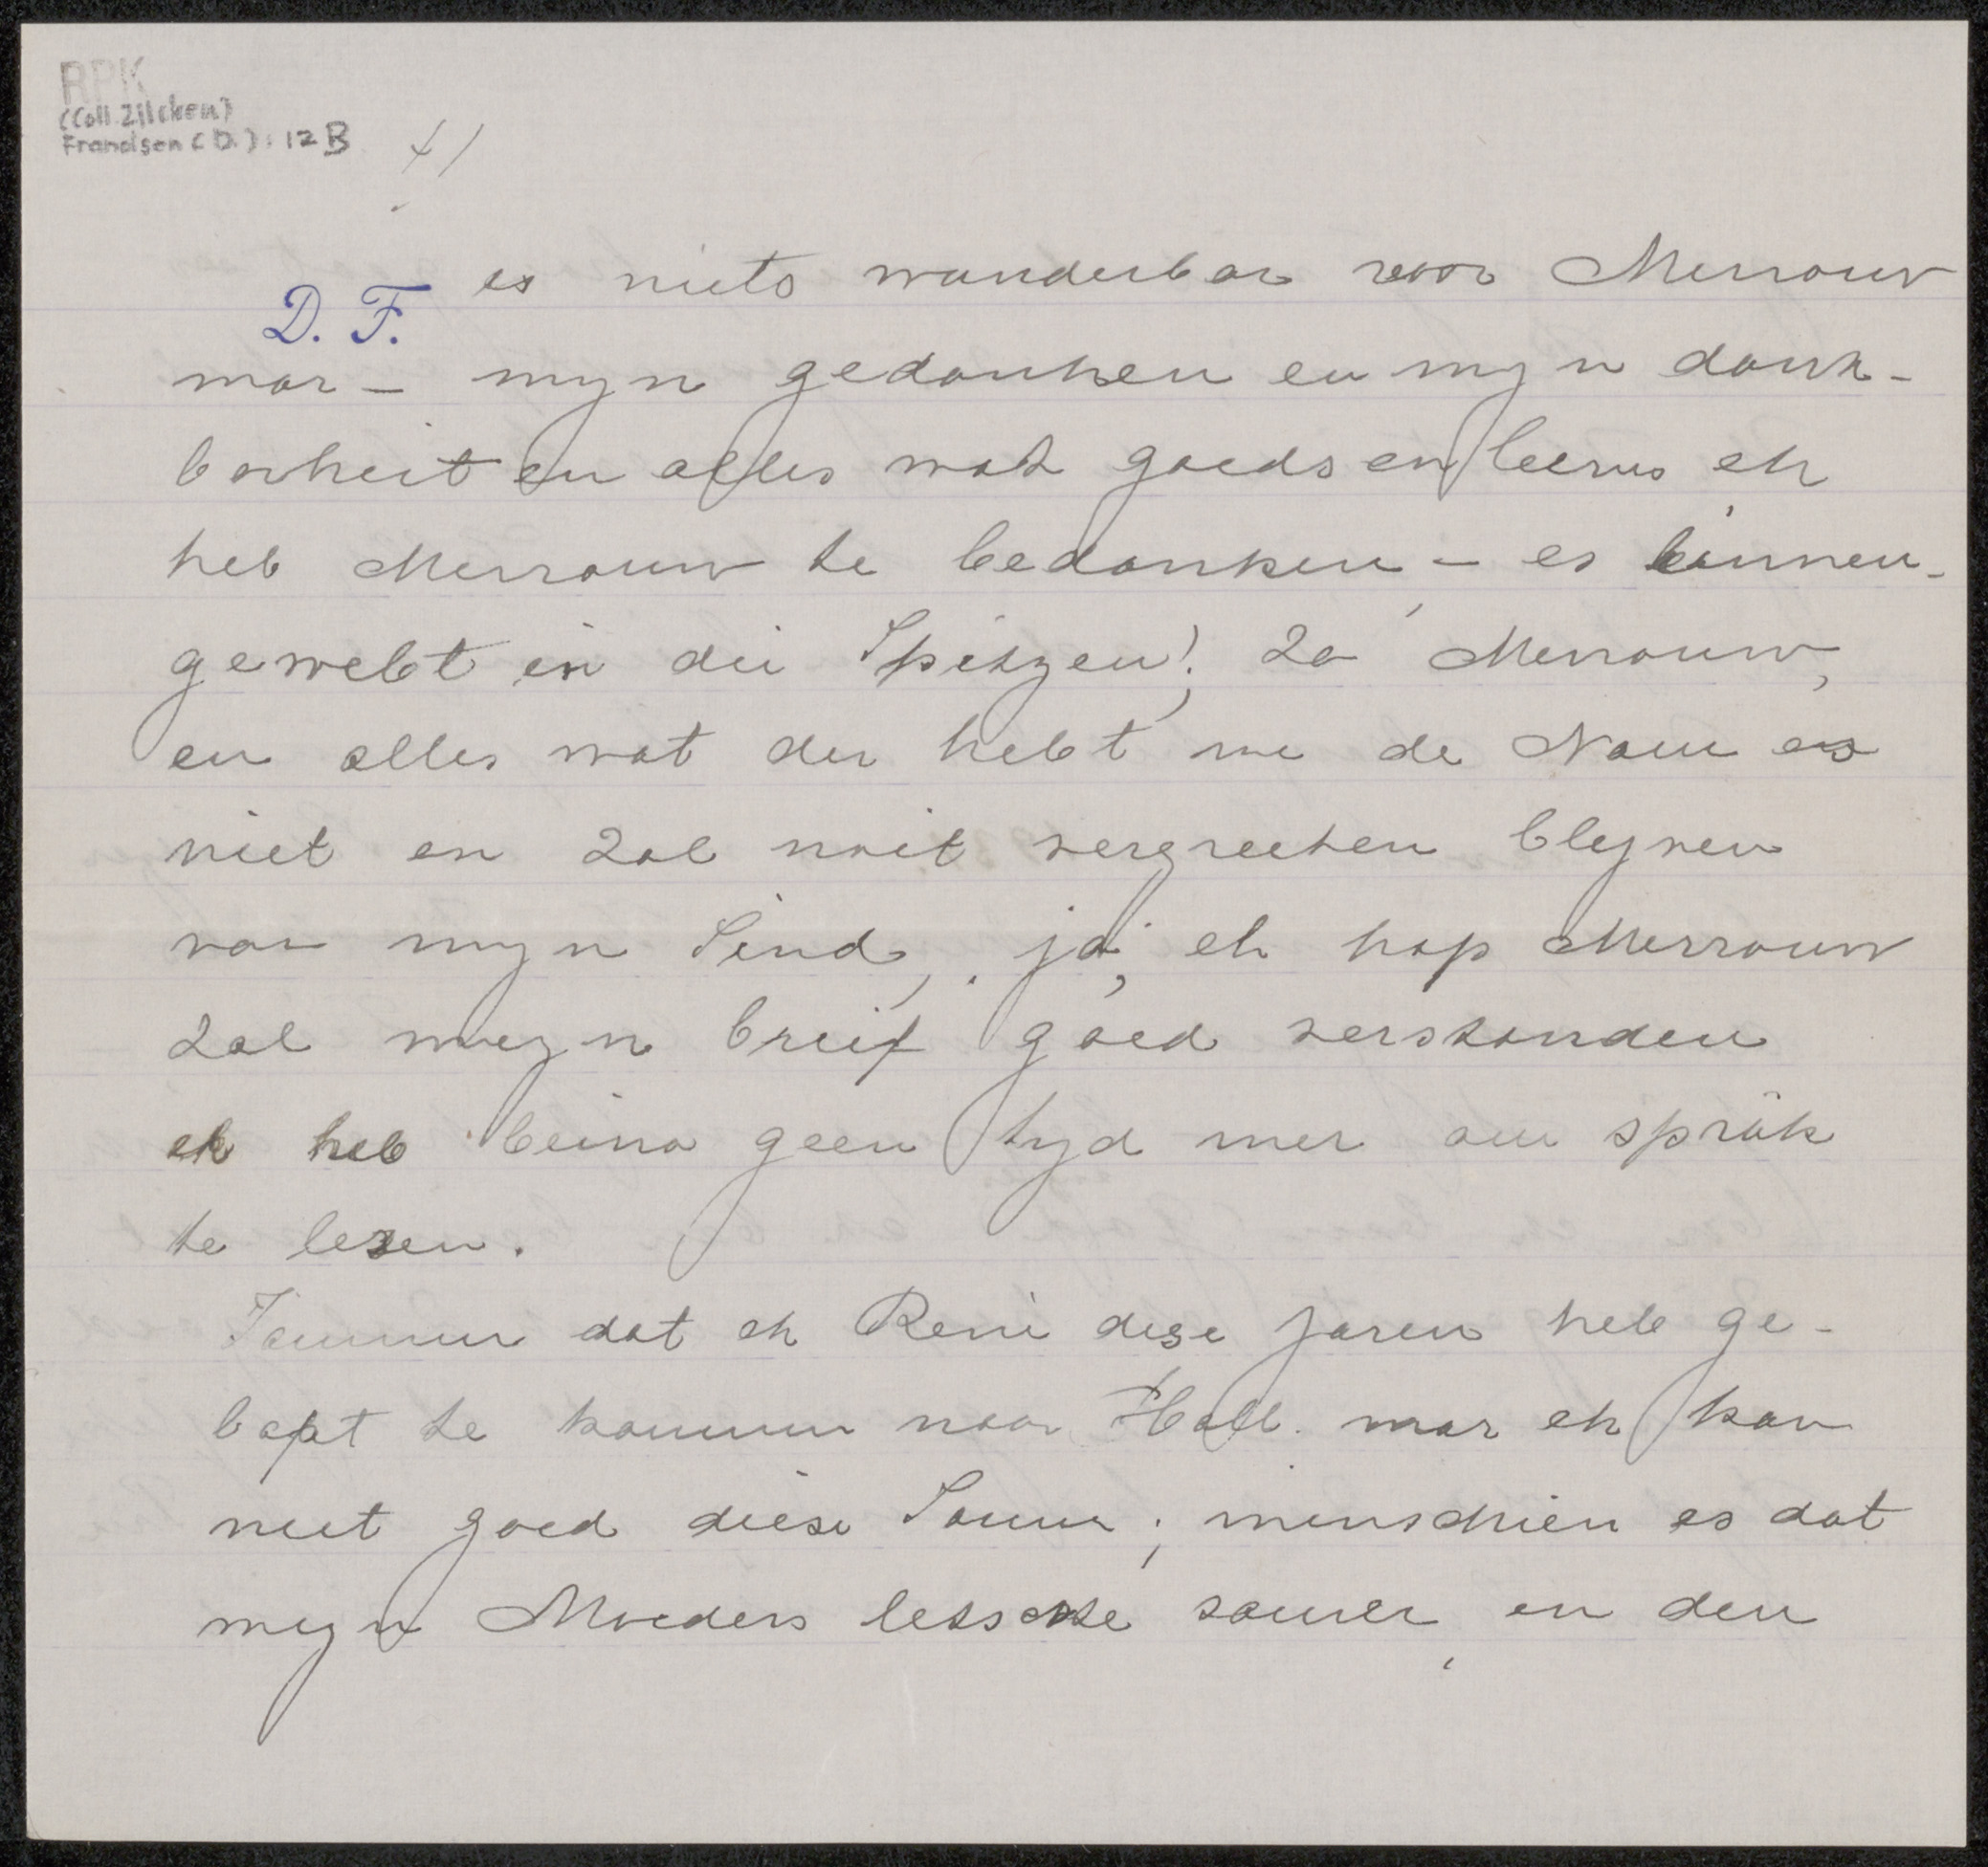 RPK
(Coll. Zilcken)
Francisen (D.): 12 B
es niets wunderbar voor Mevrouw
D. F.
mar - myn gedanken en myn dank-
barheit en alles wat goeds en leeves ek
heb Mevrouw te bedanken - es binnen-
gewebt in dii Spitzen! Zo Mevrouw,
en alles wat der hebt me de Nam es
niet en zal noit vergreeten bleyven
van myn Sind, ja, ek hop Mevrouw
zal meyn breif goed verstanden
ek heb beina geen tyd mer om spräk
te lezen.
Jammer dat ek Reni dese jaren heb ge-
bopt te kommen naar Holl. mar ek kan
neet goed diese Somm; minschien es dat
meyn Moeders letsste somer, en den